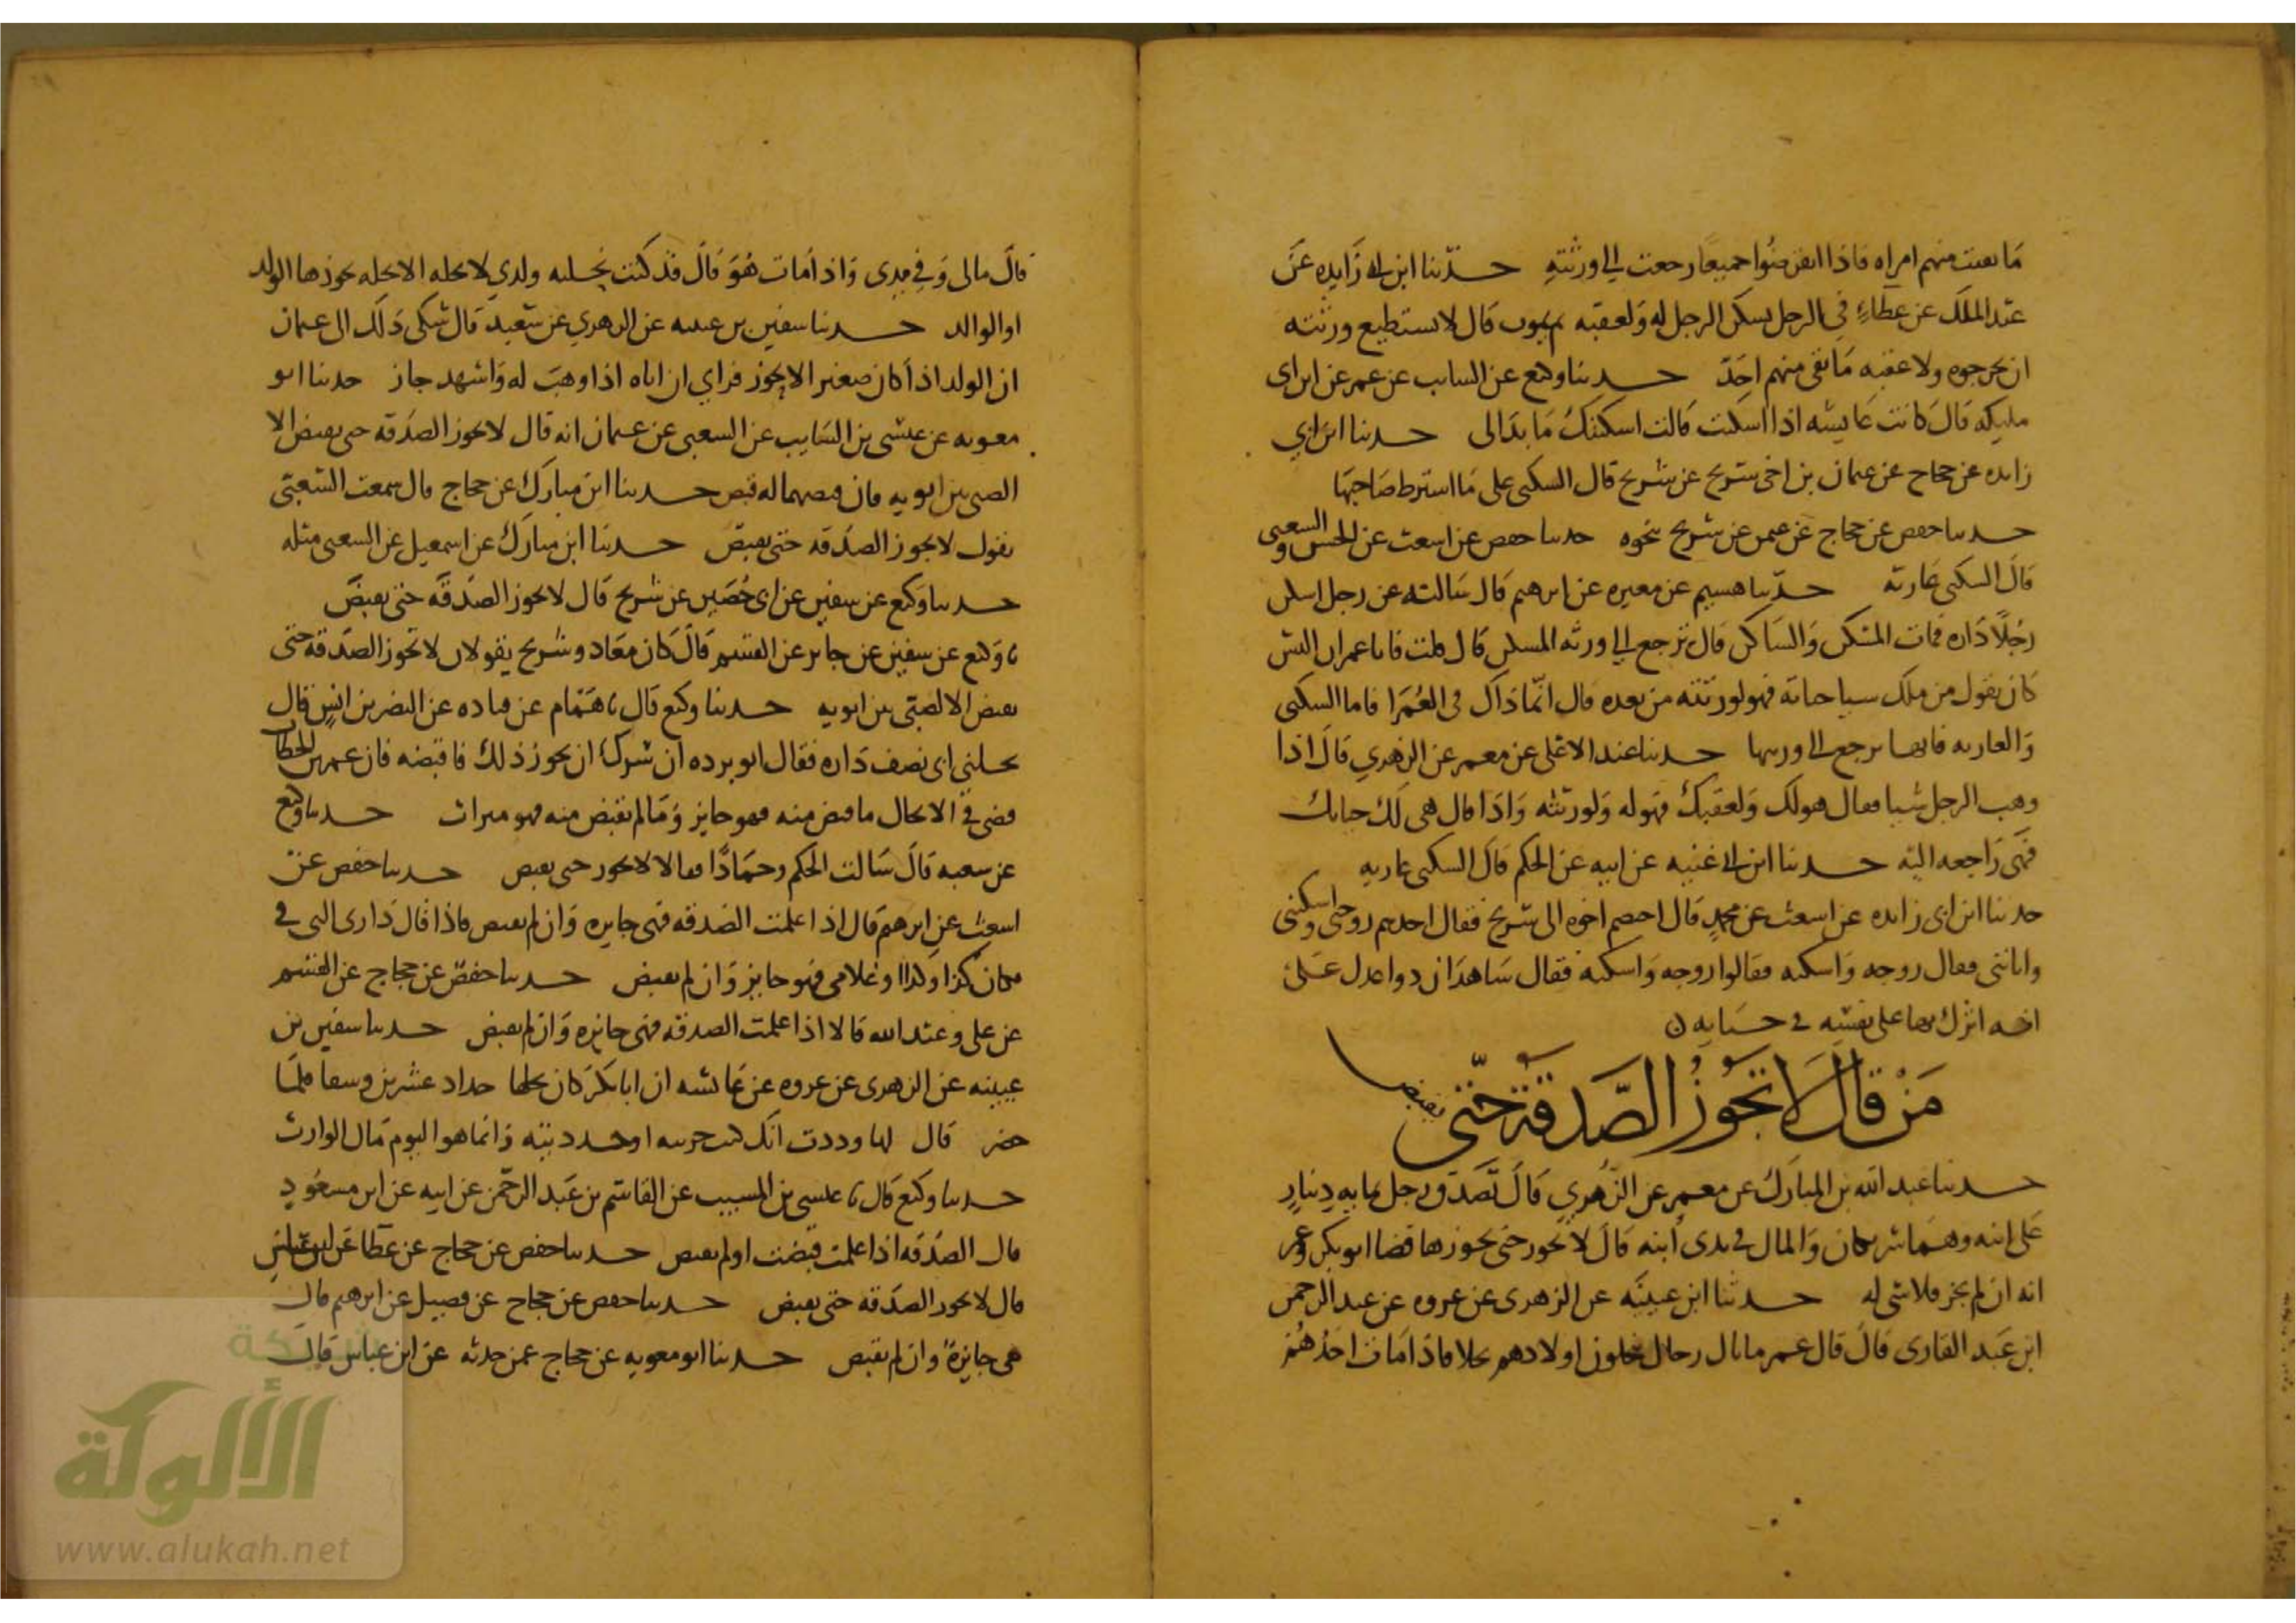 ما بقيت منهم امراه فاذا انقرضوا جميعا رجعت الى ورثته حدثنا ابن ابى زايده عن
عبد الملك عن عطاء في الرجل يسكن الرجل له ولعقبه ثم يموت قال لا يستطيع ورثته
ان يخرجوه ولا عقبه ما بقى منهم احد حدثنا وكيع عن السايب بن عمر عن ابن ابى
مليكه قال كانت عايشه اذا اسكنت قالت اسكنتك ما بدا لى حدثنا ابن ابي
زايده عن حجاج عن عثمان بن اخى شريح عن شريح قال السكنى على ما اشترط صاحبها
حدثنا حفص عن حجاج عن شريح نحوه حدثنا حفص عن اشعث عن الحسن والشعبى
قال السكنى عاريه حدثنا هشيم عن مغيره عن ابرهيم قال سالته عن رجل اسكن
رجلا داره فمات المسكن والساكن قال ترجع الى ورثه المسكن قال قلت فانا عمران اليس
كان يقول من ملك شيا حياته فهو لورثته من بعده قال انما ذاك فى العمرا فاما السكنى
والعاريه فانها ترجع الى ورثتها حدثنا عبد الاعلى عن معمر عن الزهري قال اذا
وهب الرجل شيا فقال هو لك ولعقبك فهو له ولورثته واذا قال هى لك حياتك
فهى راجعه اليه حدثنا ابن ابى غنيه عن ابيه عن الحكم قال السكنى عاريه
حدثنا ابن ابى زايده عن اشعث عن محمد قال اختصم اخوه الى شريح فقال احدهم
فقال زوجه واسكنه فقالوا زوجه واسكنه فقال شاهدان ذوا عدل على
انه اثرك بها على نفسه فى حياته
من قال لا تجوز الصدقة حتى تقبض
حدثنا عبد الله بن المبارك عن معمر عن الزهري قال تصدق رجل بمايه دينار
على ابنه وهما شريكان والمال فى يدى ابنه قال لا تجوز حتى يحوزها قضا ابو بكر وعمر
انه ان لم يحز فلا شى له حدثنا ابن عيينه عن الزهرى عن عروه عن عبد الرحمن
ابن عبد القارى قال قال عمر ما بال رجال ينحلون اولادهم نحلا فاذا مات احدهم
قال مالى وفي يدى واذا مات هو قال قد كنت نحلته ولدي لا نحله الا نحله يحوزها الولد
او الوالد حدثنا سفين بن عيينه عن الزهري عن سعيد قال شكى ذلك الى عثمان
ان الولد اذا كان صغيرا لا يحوز فراي ان اباه اذا وهب له واشهد جاز حدثنا ابو
معويه عن عيسى بن السايب عن الشعبى عن عثمان انه قال لا تجوز الصدقه حتى تقبض الا
الصبى بين ابويه فان قبضهما له قبض حدثنا ابن مبارك عن حجاج قال سمعت الشعبي
يقول لا تجوز الصدقه حتى تقبض حدثنا ابن مبارك عن اسمعيل عن الشعبى مثله
حدثنا وكيع عن سفين عن ابى حصين عن شريح قال لا تجوز الصدقه حتى تقبض
ثنا وكيع عن سفين عن جابر عن القسم قال كان معاذ وشريح يقولان لا تجوز الصدقه حتى
تقبض الا الصبى بين ابويه حدثنا وكيع قال ثنا همام عن قتاده عن النضر بن انس قال
نحلنى ابى نصف داره فقال ابو برده ان سرك ان يجوز ذلك فاقبضه فان عمر بن الخطاب
قضى فى الانحال ما قبض منه فهو جايز وما لم يقبض منه فهو ميراث حدثنا وكيع
عن شعبه قال سالت الحكم وحمادا فقالا لا تجوز حتى تقبض حدثنا حفص عن
اشعث عن ابرهيم قال اذا علمت الصدقه فهى جايزه وان لم تقبض فاذا قال دارى التى فى
مكان كذا وكذا وغلامى فهو جايز وان لم يقبض حدثنا حفص عن حجاج عن القسم
عن على وعبد الله قالا اذا علمت الصدقه فهى جايزه وان لم تقبض حدثنا سفين بن
عيينه عن الزهرى عن عروه عن عائشه ان ابا بكر كان نحلها جداد عشرين وسقا فلما
حضر قال لها وددت انك كنت حزتيه او جددتيه وانما هو اليوم مال الوارث
حدثنا وكيع قال ثنا عيسى بن المسيب عن القاسم بن عبد الرحمن عن ابيه عن ابن مسعود
قال الصدقه اذا علمت قبضت او لم تقبض حدثنا حفص عن حجاج عن عطا عن ابن عباس
قال لا تجوز الصدقه حتى تقبض حدثنا حفص عن حجاج عن فضيل عن ابرهيم قال
هى جايزة وان لم تقبض حدثنا ابو معويه عن حجاج عمن حدثه عن ابن عباس قال
شبكة
الألوكة
www.alukah.net